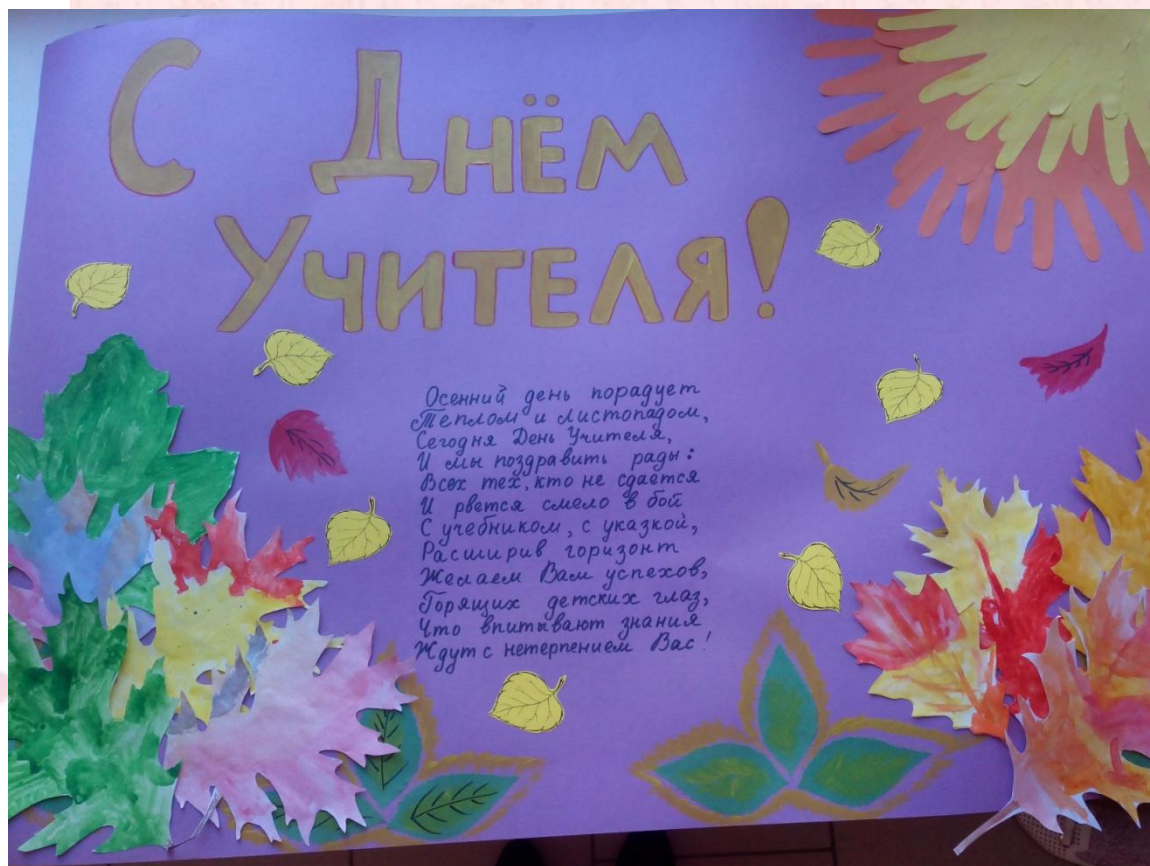 С Днём
Учителя!
Осенний день порадует
Теплом и листопадом,
Сегодня День Учителя,
И мы поздравить рады:
Всех тех, кто не сдается
И рвется смело в бой
С учебником, с указкой,
Расширив горизонт
Желаем Вам успехов,
Горящих детских глаз,
Что впитывают знания
Ждут с нетерпением Вас!